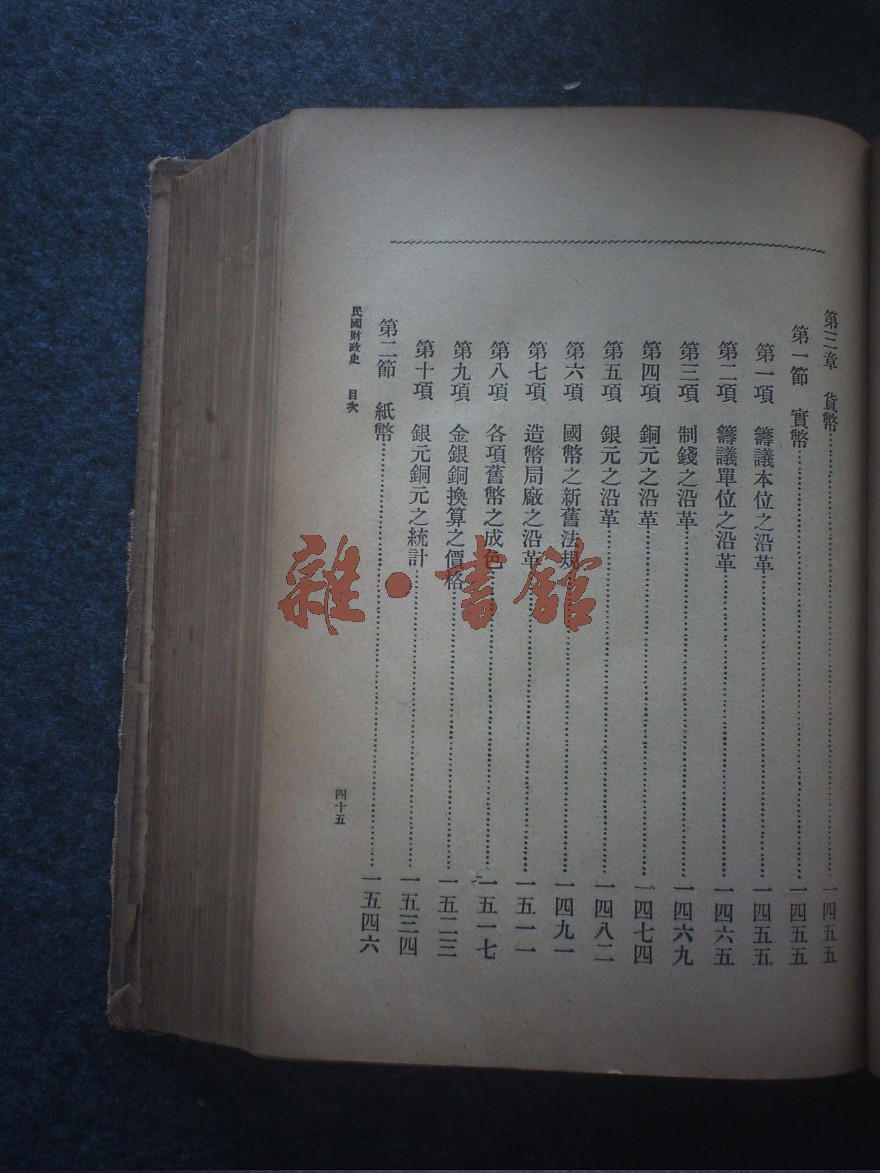 第三章 貨幣……一四五五
第一節 實幣……一四五五
第一項 籌議本位之沿革……一四五五
第二項 籌議單位之沿革……一四六五
第三項 制錢之沿革……一四六九
第四項 銅元之沿革……一四七四
第五項 銀元之沿革……一四八二
第六項 國幣之新舊法規……一四九一
第七項 造幣局廠之沿革……一五一一
第八項 各項舊幣之成色……一五一七
第九項 金銀銅換算之價格……一五二三
第十項 銀元銅元之統計……一五三四
第二節 紙幣……一五四六
民國財政史 目次
四十五
雜·書館